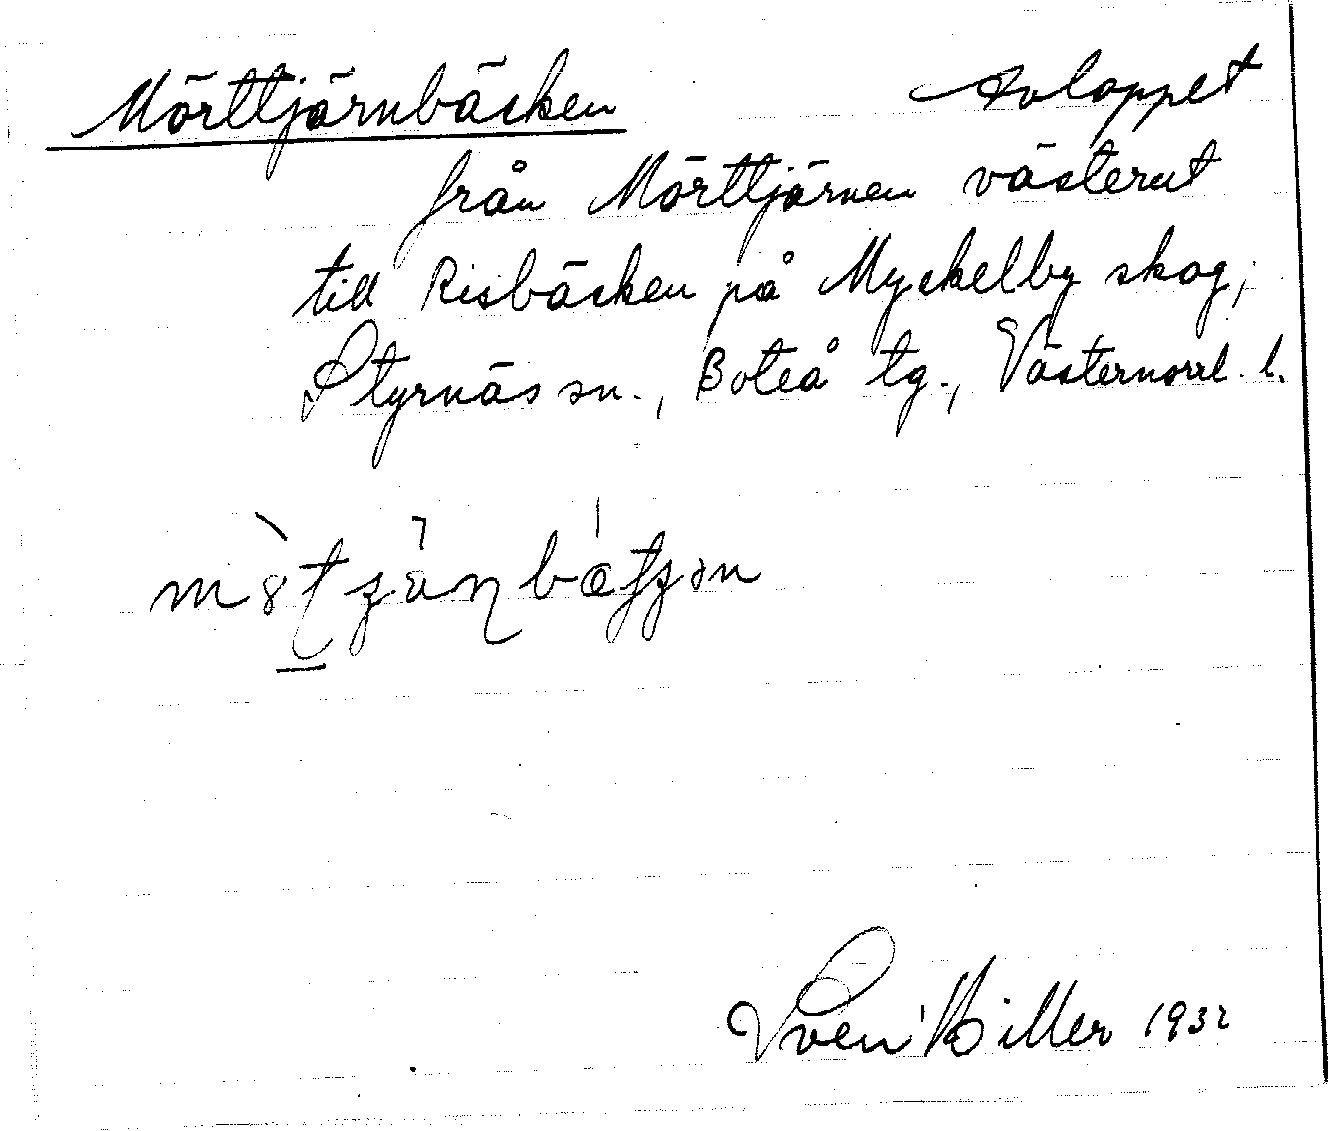 Mörttjärnbäcken Avloppet
från Mörttjärnen västerut
till Risbäcken på Myckelby skog,
Styrnäs sn., Boteå tg., Västernorrl. l.
Sven Hiller 1932